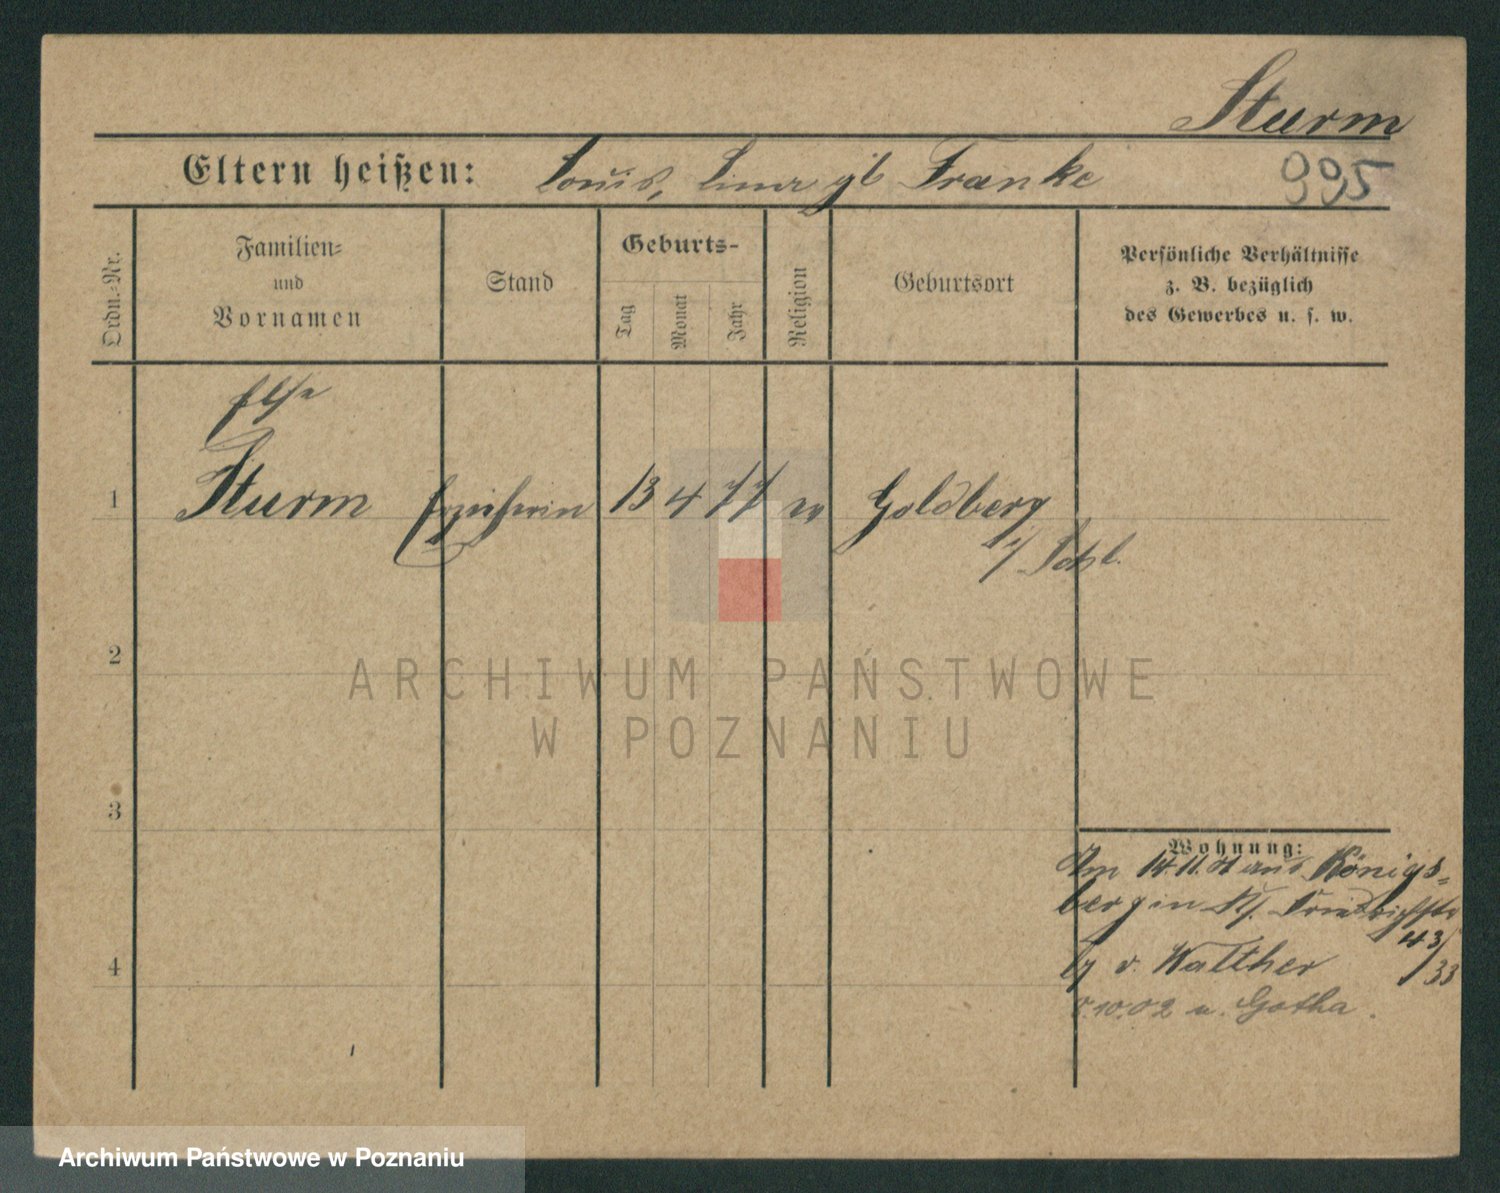 Sturm
Eltern heißen: Louis, Lina gb Franke
995
Ordn.-Nr.
Familien- und Vornamen
Stand
Geburts-
Tag
Monat
Jahr
Religion
Geburtsort
Persönliche Verhältnisse
z. B. bezüglich
des Gewerbes u. s. w.
Else
1 Sturm Erzieherin 13 4 77 ev Goldberg
i/ Schl.
2
3
4
ARCHIWUM PAŃSTWOWE
W POZNANIU
Wohnung:
Am 14.11.01 aus Königs-
berg in Friedrichstr
43/
b v. Walther /33
10.02 n. Gotha.
Archiwum Państwowe w Poznaniu